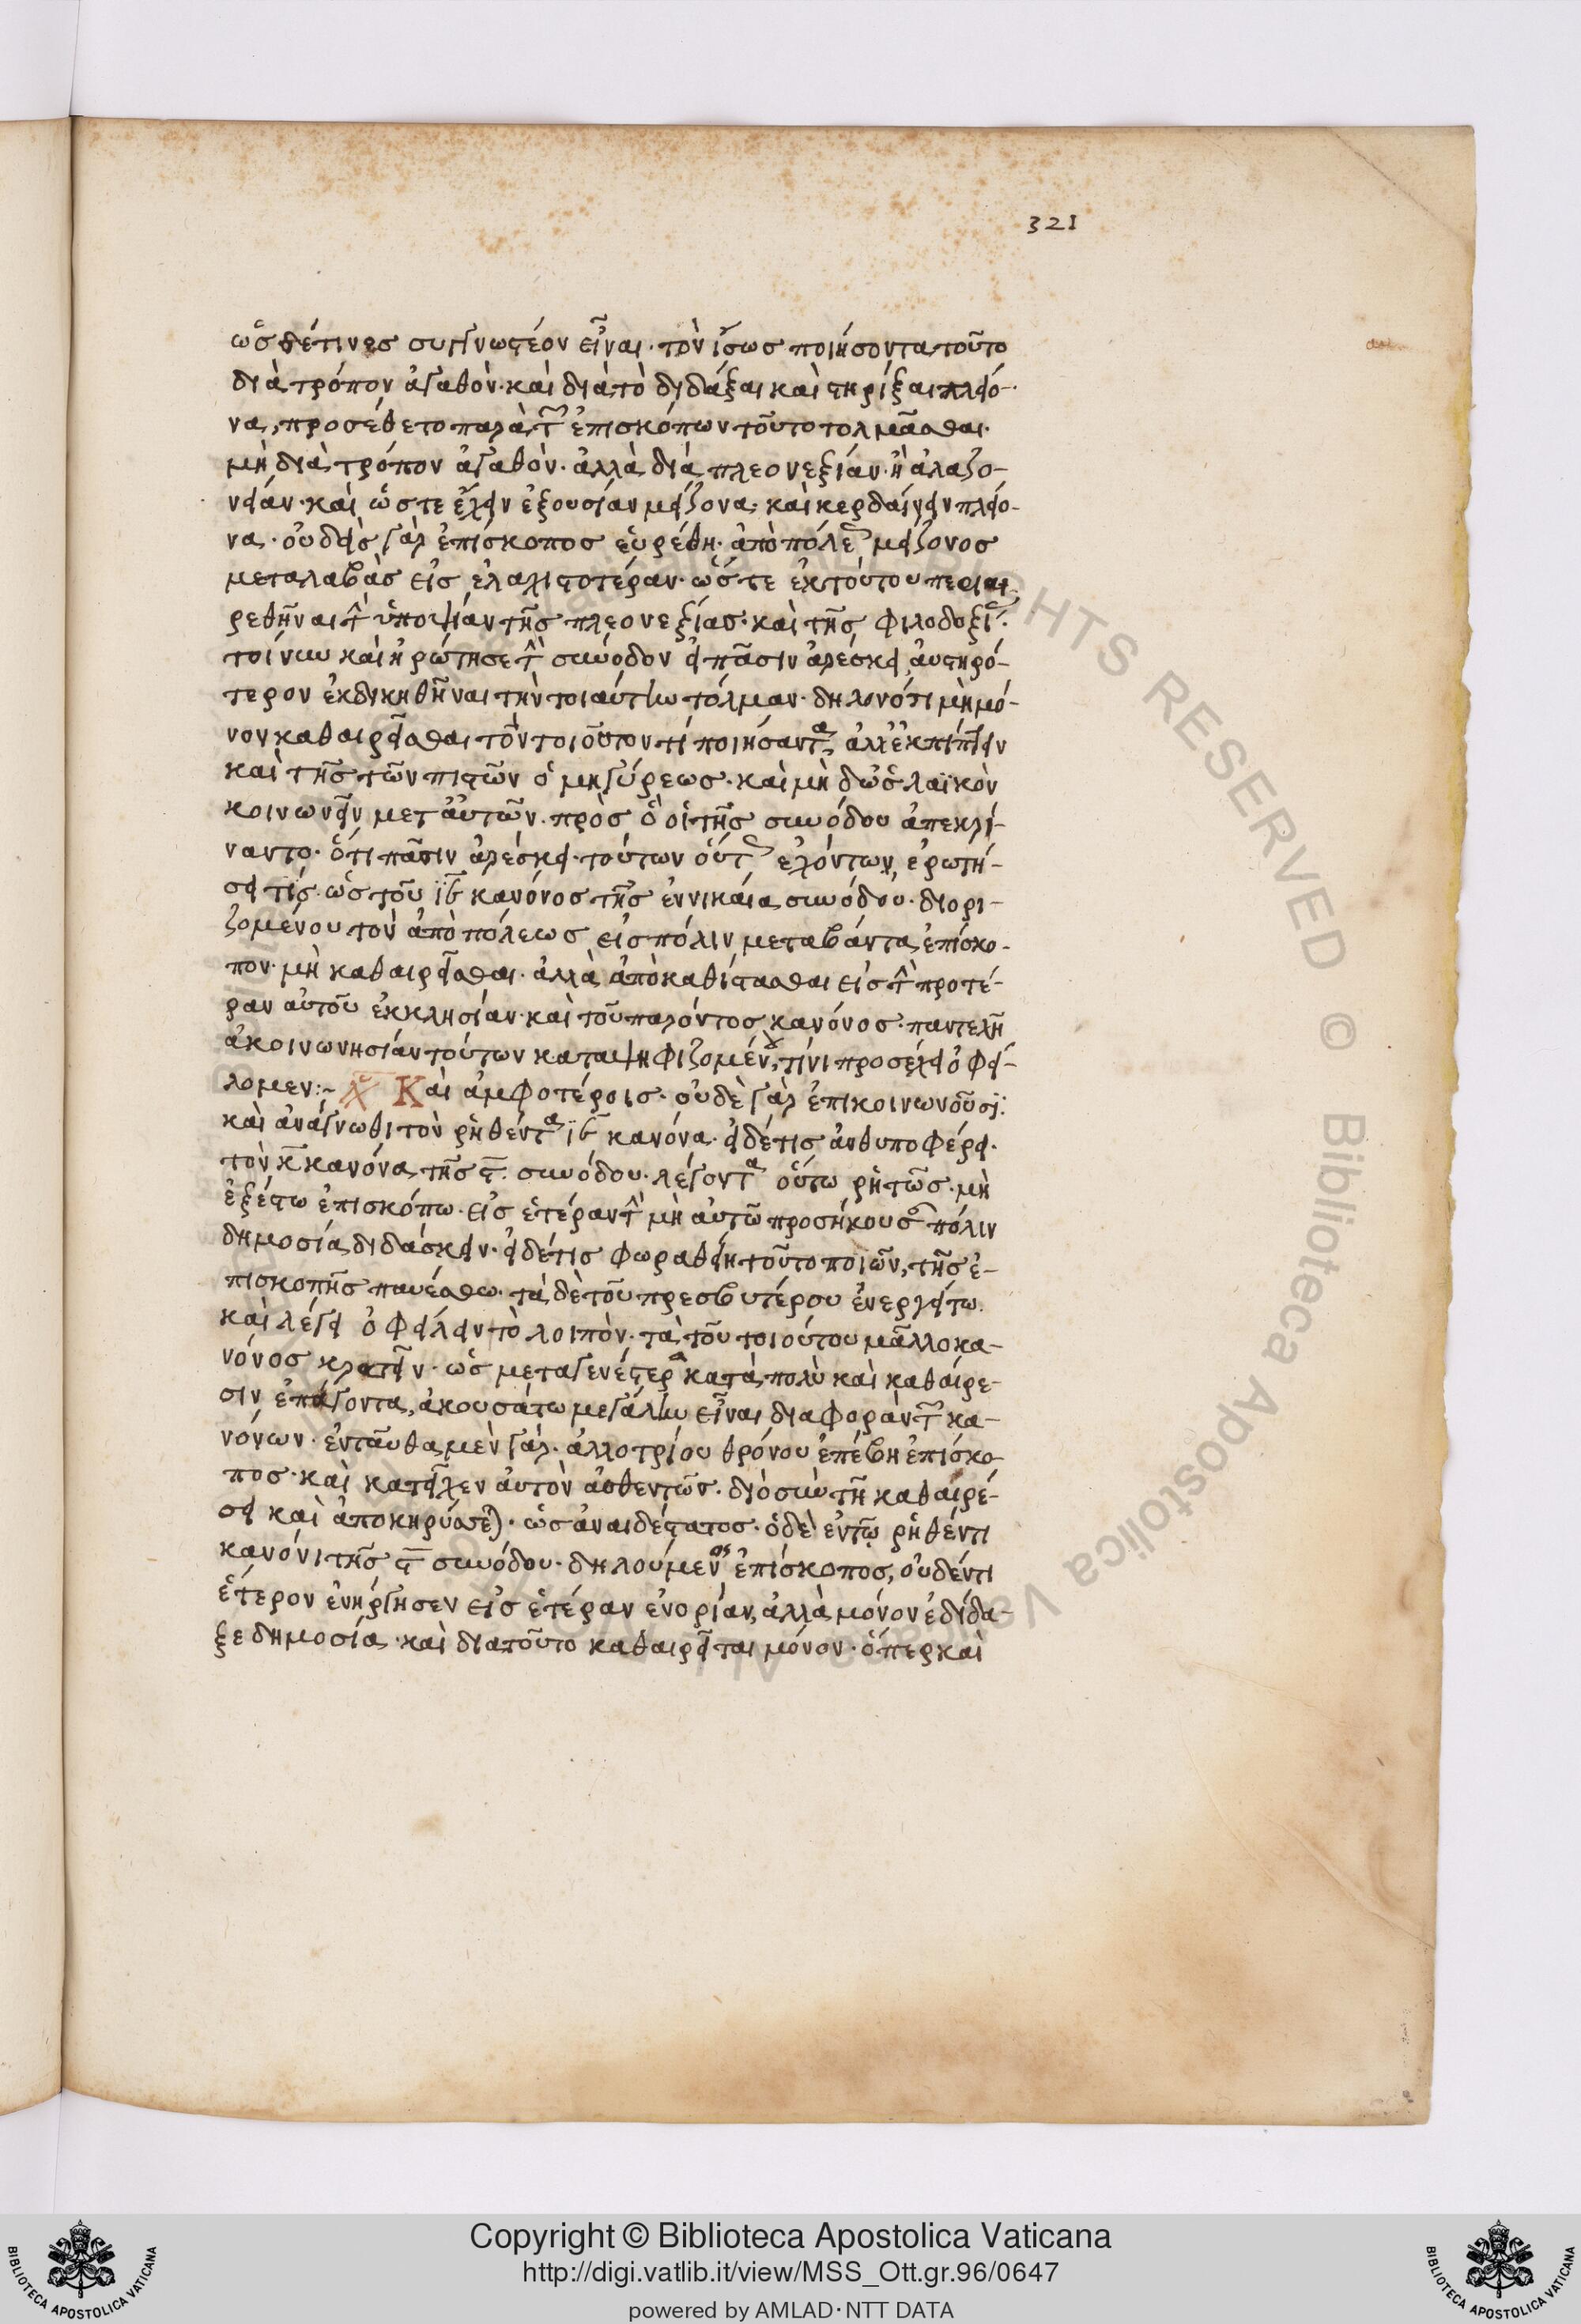 321
ὡς δέ τινες συγγνωστέον εἶναι· τὸν ἴσως ποιήσοντα τοῦτο
διὰ τρόπον ἀγαθὸν· καὶ διὰ τὸ διδάξαι καὶ στηρίξαι πλείο-
να, προσέθετο παρὰ τῶν ἐπισκόπων τοῦτο τολμᾶσθαι·
μὴ διὰ τρόπον ἀγαθὸν· ἀλλὰ διὰ πλεονεξίαν· ἢ ἀλαζο-
νείαν· καὶ ὥστε ἔχειν ἐξουσίαν μείζονα· καὶ κερδαίνειν πλείο-
να· οὐδεὶς γὰρ ἐπίσκοπος εὑρέθη· ἀπὸ πόλεως μείζονος
μεταλαβὰς εἰς ἐλαχιστοτέραν· ὥστε ἐκ τούτου περιαι-
ρεθῆναι τὴν ὑποψίαν τῆς πλεονεξίας· καὶ τῆς φιλοδοξίας·
τοίνυν καὶ ἠρώτησε τὴν σύνοδον εἰ πᾶσιν ἀρέσκει αὐστηρό-
τερον ἐκδικηθῆναι τὴν τοιαύτην τόλμαν· δηλονότι μὴ μό-
νον καθαιρεῖσθαι τὸν τοιοῦτόν τι ποιήσαντα, ἀλλ' ἐκπίπτειν
καὶ τῆς τῶν πιστῶν ὁμηγύρεως· καὶ μὴ δὲ ὡς λαϊκὸν
κοινωνεῖν μετ' αὐτῶν· πρὸς ὃ οἱ τῆς συνόδου ἀπεκρί-
ναντο· ὅτι πᾶσιν ἀρέσκει· τούτων οὕτως ἐχόντων, ἐρωτή-
σει τίς· ὡς τοῦ ιϛ κανόνος τῆς ἐν νικαία συνόδου· διορι-
ζομένου τὸν ἀπὸ πόλεως εἰς πόλιν μεταβάντα ἐπίσκο-
πον· μὴ καθαιρεῖσθαι· ἀλλὰ ἀποκαθίστασθαι εἰς τὴν προτέ-
ραν αὐτοῦ ἐκκλησίαν· καὶ τοῦ παρόντος κανόνος· παντελῆ
ἀκοινωνησίαν τούτων καταψηφιζομένου, τίνι προσέχειν ὀφεί-
λομεν:~ Καὶ ἀμφοτέροις· οὐδὲ γὰρ ἐπικοινωνοῦσι·
καὶ ἀνάγνωθι τὸν ῥηθέντα ιϛ κανόνα· εἰ δέ τις ἀνθυποφέρει·
τὸν κ κανόνα τῆς ϛ συνόδου· λέγοντα οὕτω ῥητῶς· μὴ
ἐξέστω ἐπισκόπω· εἰς ἑτέραν τὴν μὴ αὐτῶ προσήκουσαν πόλιν
δημοσία διδάσκειν· εἰ δέ τις φωραθείη τοῦτο ποιῶν, τῆς ἐ-
πισκοπῆς παυέσθω· τὰ δὲ τοῦ πρεσβυτέρου ἐνεργείτω·
καὶ λέγει ὀφείλειν τὸ λοιπὸν· τὰ τοῦ τοιούτου μᾶλλον κα-
νόνος κρατεῖν· ὡς μεταγενέστερα κατὰ πολὺ καὶ καθαίρε-
σιν ἐπάγοντα, ἀκουσάτω μεγάλην εἶναι διαφορὰν τῶν κα-
νόνων· ἐνταῦθα μὲν γὰρ· ἀλλοτρίου θρόνου ἐπέβη ἐπίσκο-
πος· καὶ κατεῖχεν αὐτὸν αὐθεντῶν· διὸ σὺν τῆ καθαιρέ-
σει καὶ ἀποκηρύσσεται· ὡς ἀναιδέστατος· ὁ δὲ ἐν τῷ ῥηθέντι
κανόνι τῆς ϛ συνόδου· δηλούμενος ἐπίσκοπος, οὐδέν τι
ἕτερον ἐνήργησεν εἰς ἑτέραν ἐνορίαν, ἀλλὰ μόνον ἐδίδα-
ξε δημοσία· καὶ διὰ τοῦτο καθαιρεῖται μόνον· ὅπερ καὶ
ALL RIGHTS RESERVED © Biblioteca Apostolica Vaticana
BIBLIOTECA APOSTOLICA VATICANA
Copyright © Biblioteca Apostolica Vaticana
http://digi.vatlib.it/view/MSS_Ott.gr.96/0647
powered by AMLAD·NTT DATA
BIBLIOTECA APOSTOLICA VATICANA